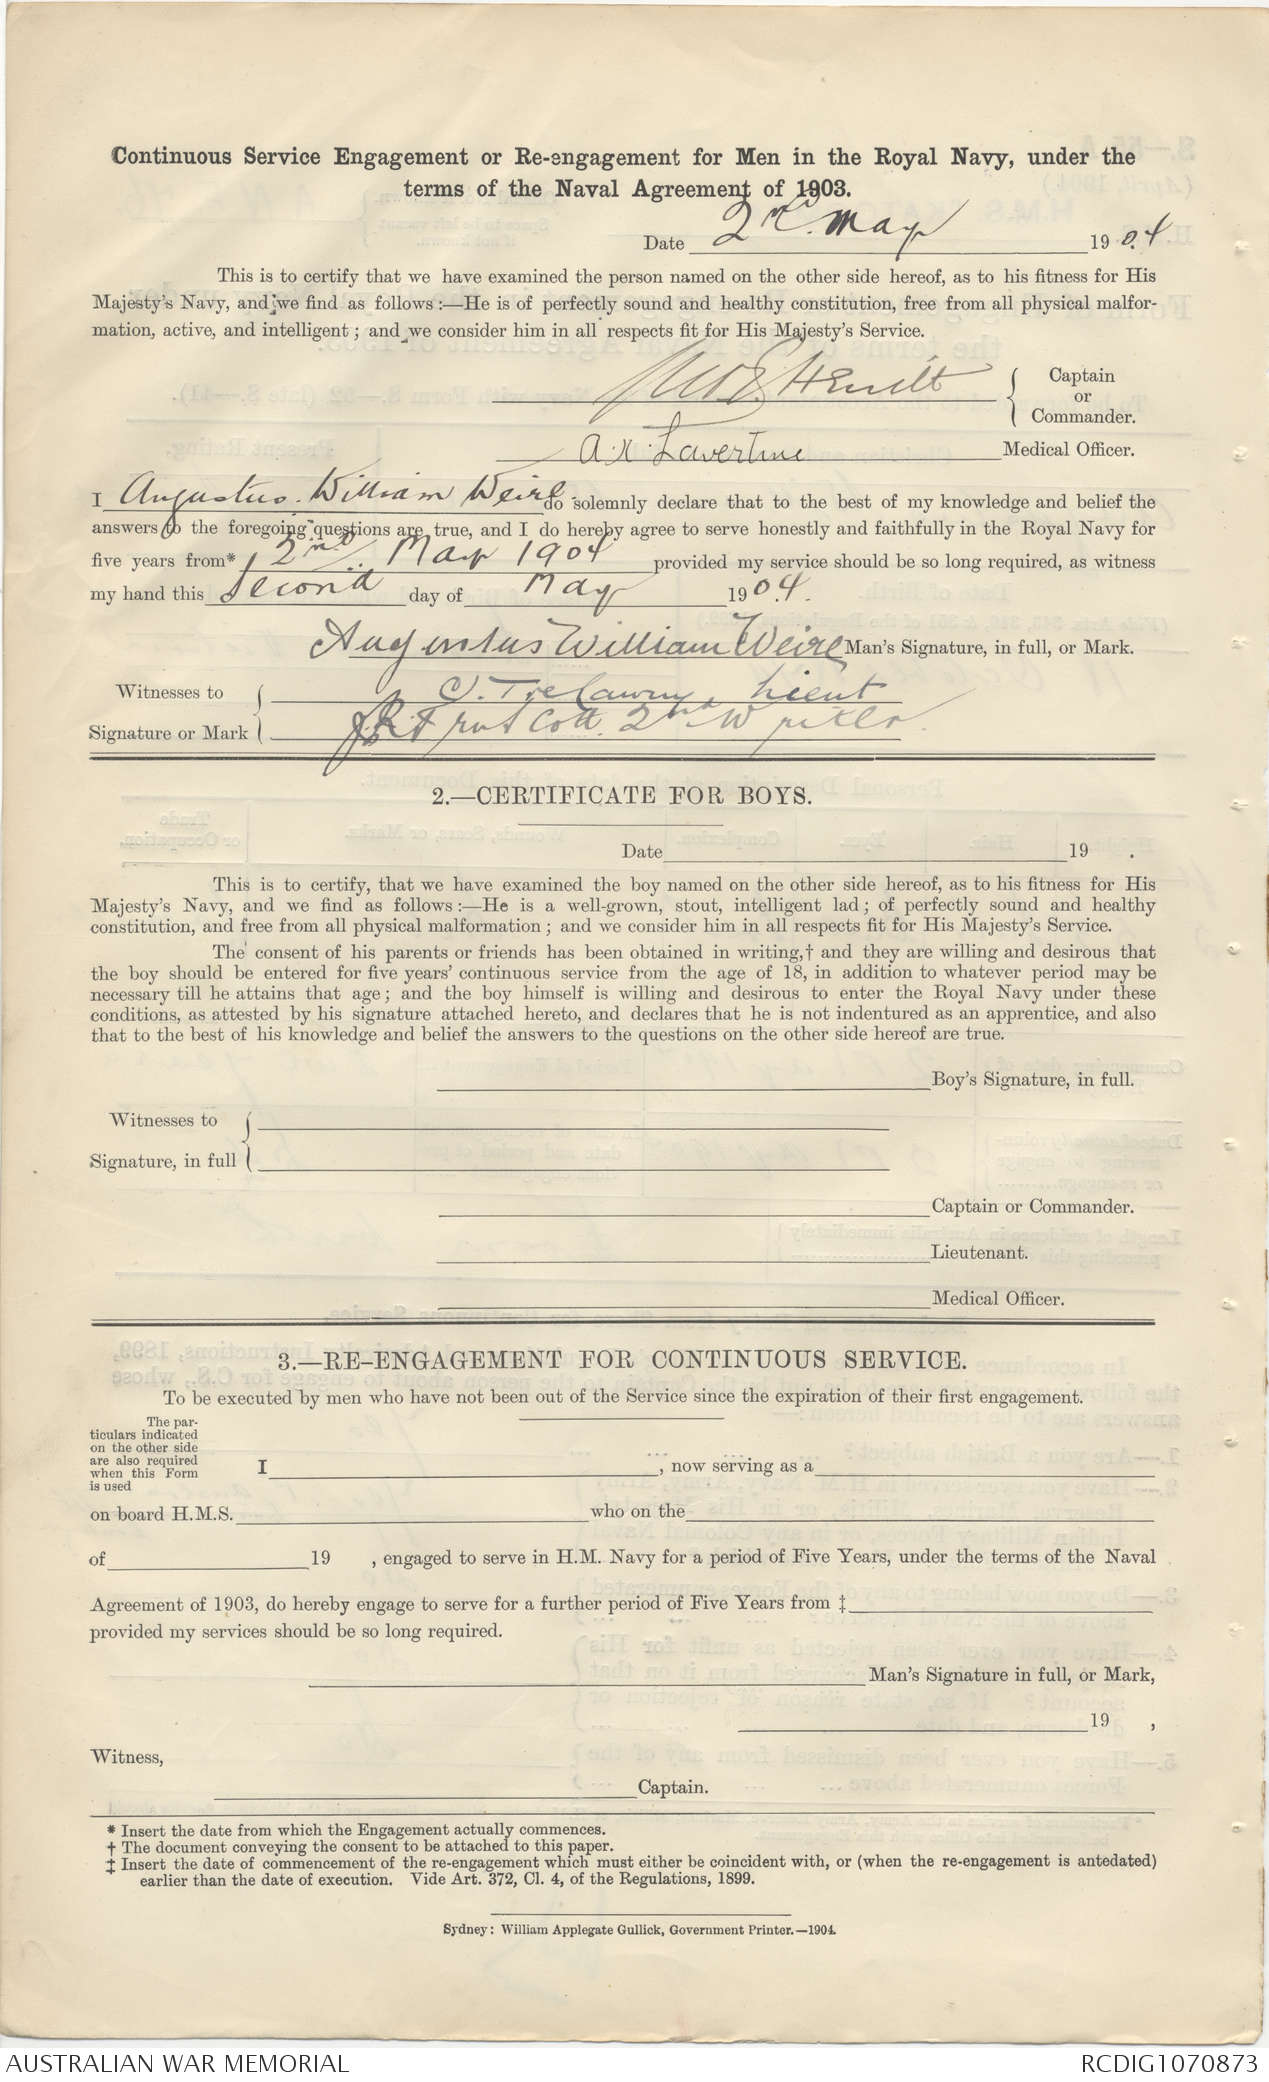 Continuous Service Engagement or Re-engagement for Men in the Royal Navy, under the
terms of the Naval Agreement of 1903.
Date 2nd. May 1904
This is to certify that we have examined the person named on the other side hereof, as to his fitness for His
Majesty's Navy, and we find as follows:—He is of perfectly sound and healthy constitution, free from all physical malfor-
mation, active, and intelligent; and we consider him in all respects fit for His Majesty's Service.
Captain
or
Commander.
Medical Officer.
I Augustus William Weire do solemnly declare that to the best of my knowledge and belief the
answers to the foregoing questions are true, and I do hereby agree to serve honestly and faithfully in the Royal Navy for
five years from* 2nd. May 1904 provided my service should be so long required, as witness
my hand this Second day of May 1904.
Augustus William Weire Man's Signature, in full, or Mark.
Witnesses to
Trelawny, Lieut
Signature or Mark
2nd Writer.
2.—CERTIFICATE FOR BOYS.
Date 19 .
This is to certify, that we have examined the boy named on the other side hereof, as to his fitness for His
Majesty's Navy, and we find as follows:—He is a well-grown, stout, intelligent lad; of perfectly sound and healthy
constitution, and free from all physical malformation; and we consider him in all respects fit for His Majesty's Service.
The consent of his parents or friends has been obtained in writing,† and they are willing and desirous that
the boy should be entered for five years' continuous service from the age of 18, in addition to whatever period may be
necessary till he attains that age; and the boy himself is willing and desirous to enter the Royal Navy under these
conditions, as attested by his signature attached hereto, and declares that he is not indentured as an apprentice, and also
that to the best of his knowledge and belief the answers to the questions on the other side hereof are true.
Boy's Signature, in full.
Witnesses to
Signature, in full
Captain or Commander.
Lieutenant.
Medical Officer.
3.—RE-ENGAGEMENT FOR CONTINUOUS SERVICE.
To be executed by men who have not been out of the Service since the expiration of their first engagement.
The par-
ticulars indicated
on the other side
are also required
when this Form
is used
I , now serving as a
on board H.M.S. who on the
of 19 , engaged to serve in H.M. Navy for a period of Five Years, under the terms of the Naval
Agreement of 1903, do hereby engage to serve for a further period of Five Years from ‡
provided my services should be so long required.
Man's Signature in full, or Mark,
19 ,
Witness,
Captain.
* Insert the date from which the Engagement actually commences.
† The document conveying the consent to be attached to this paper.
‡ Insert the date of commencement of the re-engagement which must either be coincident with, or (when the re-engagement is antedated)
earlier than the date of execution. Vide Art. 372, Cl. 4, of the Regulations, 1899.
Sydney: William Applegate Gullick, Government Printer.—1904.
AUSTRALIAN WAR MEMORIAL
RCDIG1070873